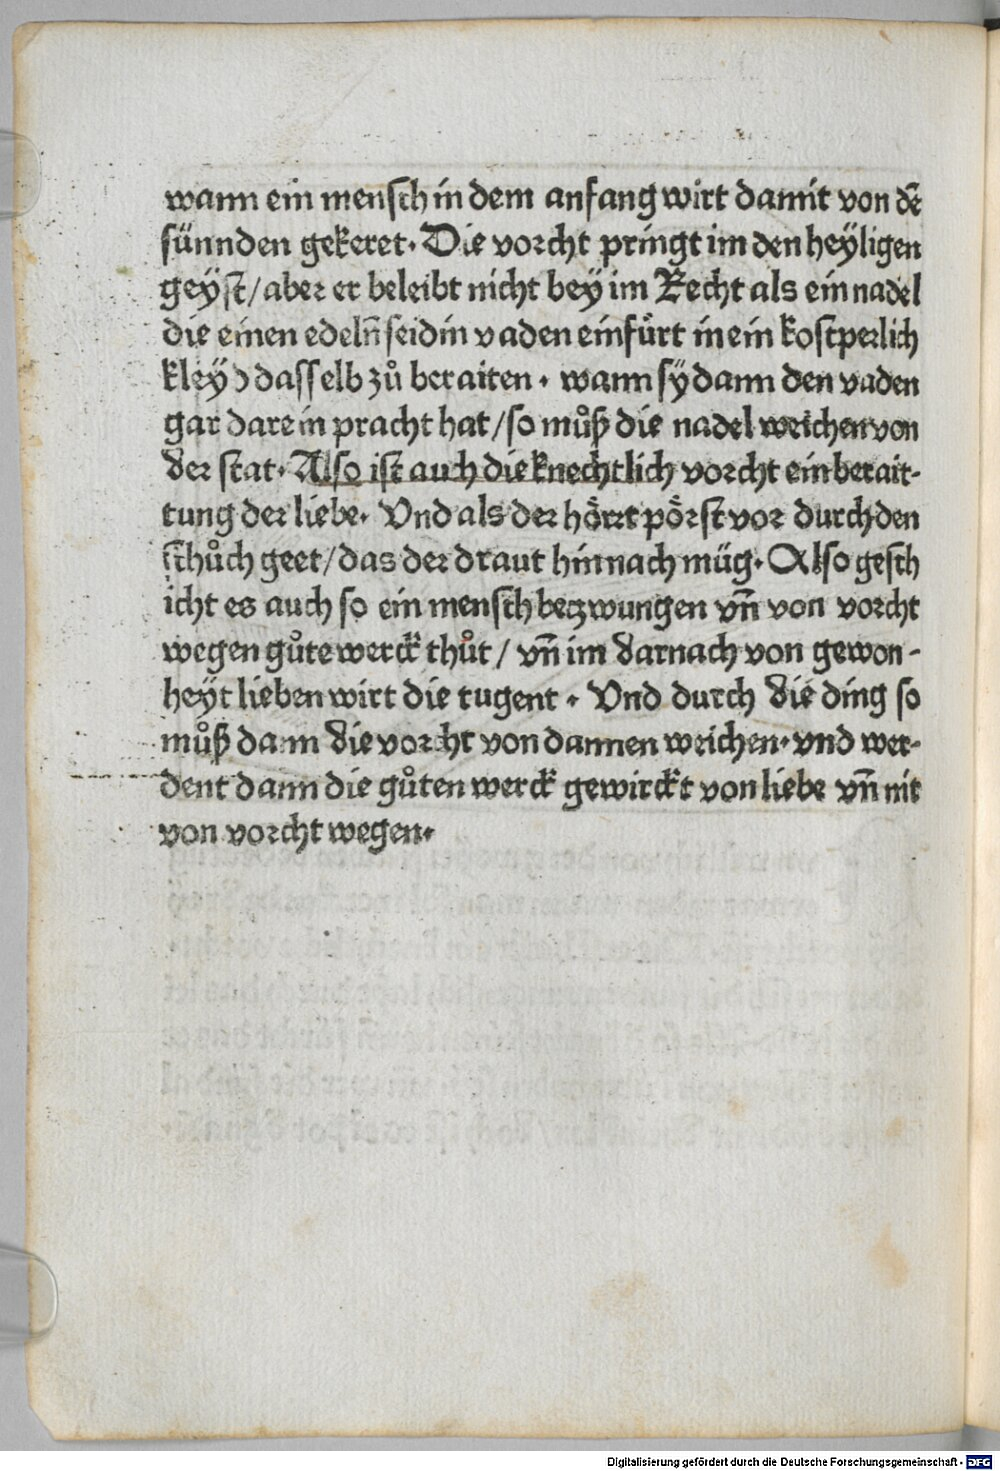 wann ein mensch in dem anfang wirt damit von dē
sünnden gekeret. Die vorcht pringt im den heyligen
geyst/ aber er beleibt nicht bey im Recht als ein nadel
die einen edeln̄ seidin vaden einfůrt in ein kostperlich
kleyd dasselb zů beraiten. wann sy dann den vaden
gar darein pracht hat/ so můß die nadel weichen von
der stat. Also ist auch die knechtlich vorcht ein berait-
tung der liebe. Vnd als der hörrt pörst vor durch den
schůch geet/ das der draut hinnach müg. Also gesch
icht es auch so ein mensch bezwungen vn̄ von vorcht
wegen gůte werck thůt/ vn̄ im darnach von gewon-
heyt lieben wirt die tugent. Vnd durch die ding so
můß dann die vorcht von dannen weichen. vnd wer-
dent dann die gůten werck gewirckt von liebe vn̄ nit
von vorcht wegen.
Digitalisierung gefördert durch die Deutsche Forschungsgemeinschaft - DFG